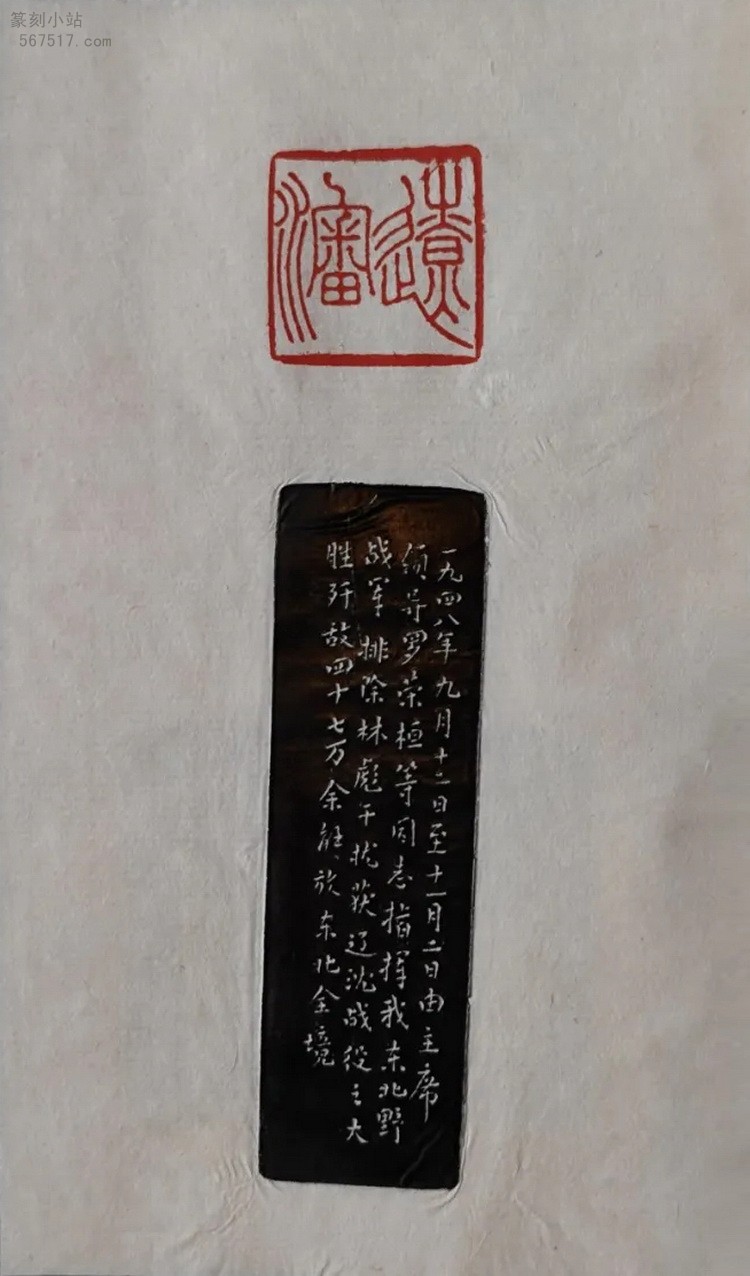 篆刻小站
567517.com
遼瀋
一九四八年九月十二日至十一月二日由主席
领导罗荣桓等同志指挥我东北野
战军排除林彪干扰获辽沈战役之大
胜歼敌四十七万余解放东北全境